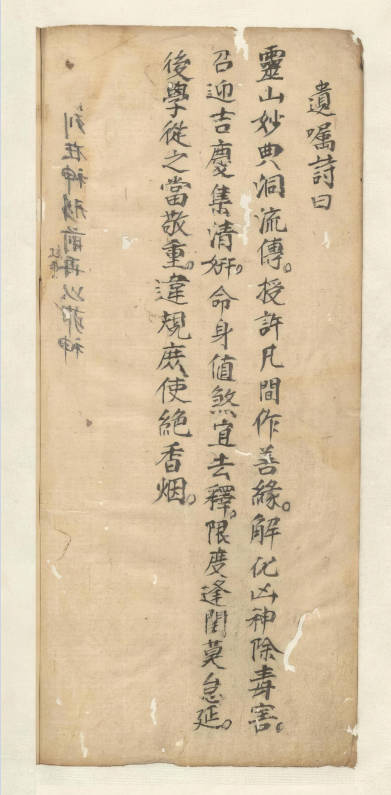 遺嘱詩曰
靈山妙典洞流傳。授許凡間作善緣。解化凶神除毒害。
召迎吉慶集清妍。命身值煞宜去釋。限度逢閏莫怠延。
後學從之當敬重。違規庶使絕香烟。
列在神 前再以 神